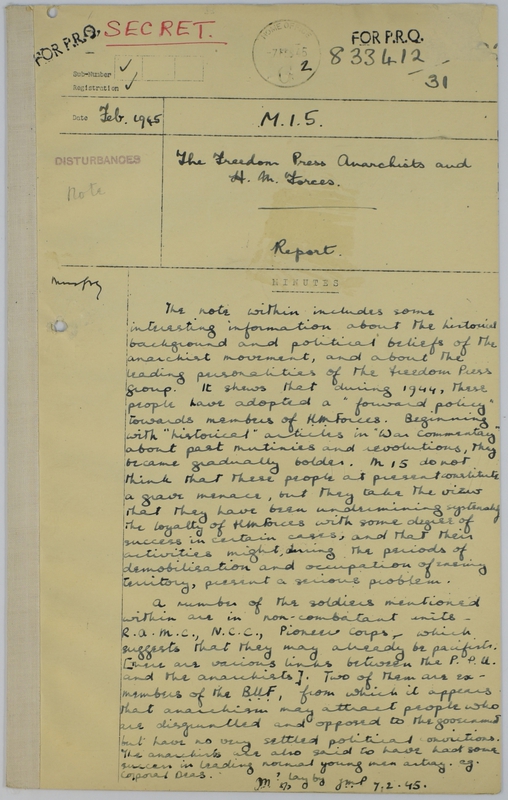 FOR P.R.O. SECRET. FOR P.R.O.
HOME OFFICE
833412
2
31
Sub-Number
Registration
Date Feb. 1945 M.I.5.
DISTURBANCES
Note
The Freedom Press Anarchists and
H. M. Forces.
Report.
MINUTES
The note within includes some
interesting information about the historical
background and political beliefs of the
anarchist movement, and about the
leading personalities of the Freedom Press
group. It shews that during 1944, these
people have adopted a "forward policy"
towards members of HMForces. Beginning
with "historical" articles in "War Commentary"
about past mutinies and revolutions, they
became gradually bolder. M I 5 do not
think that these people at present constitute
a grave menace, but they take the view
that they have been undermining systematically
the loyalty of HMForces with some degree of
success in certain cases, and that their
activities might, during the periods of
demobilisation and occupation of enemy
territory, present a serious problem.
A number of the soldiers mentioned
within are in non-combatant units -
R.A.M.C., N.C.C., Pioneer Corps, which
suggests that they may already be pacifists.
[There are various links between the P.P.U.
and the anarchists]. Two of them are ex-
members of the BUF, from which it appears
that anarchism may attract people who
are disgruntled and opposed to the government
but have no very settled political convictions.
The anarchists are also said to have had some
success in leading normal young men astray. eg.
Corporal Deas.
7.2.45.